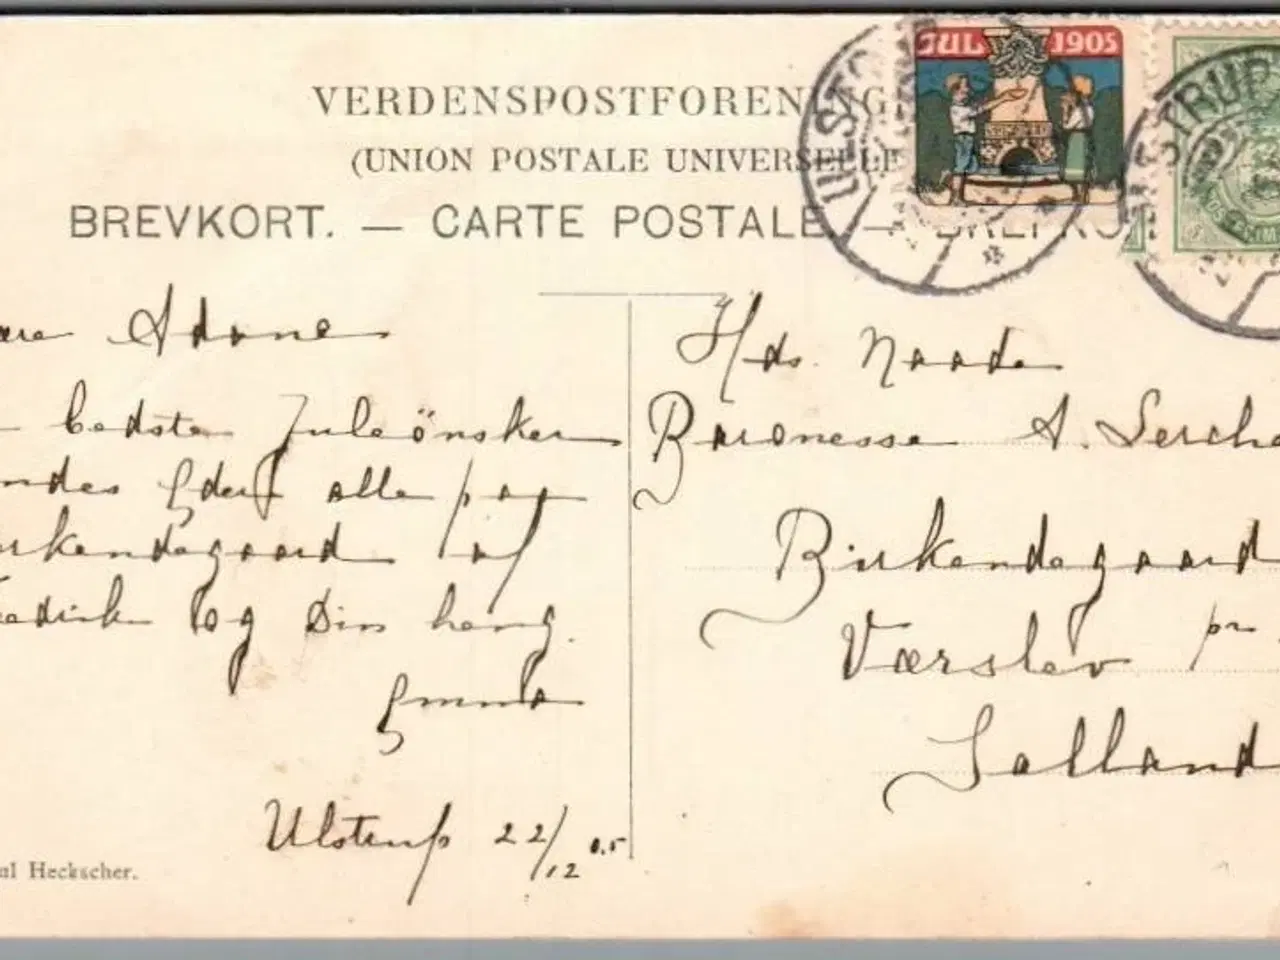 JUL 1905
VERDENSPOSTFORENING
(UNION POSTALE UNIVERSELLE
BREVKORT. — CARTE POSTALE — BREFKO
ULSTRUP
STRUP
bedste Juleönsker
Eder alle paa
rkendegaard
og Din heng.
Emma
Ulstrup 22/12 05
Hds. Naade
Baronesse A. Lerche
Birkendegaard
Værslev pr
Sælland
ul Heckscher.